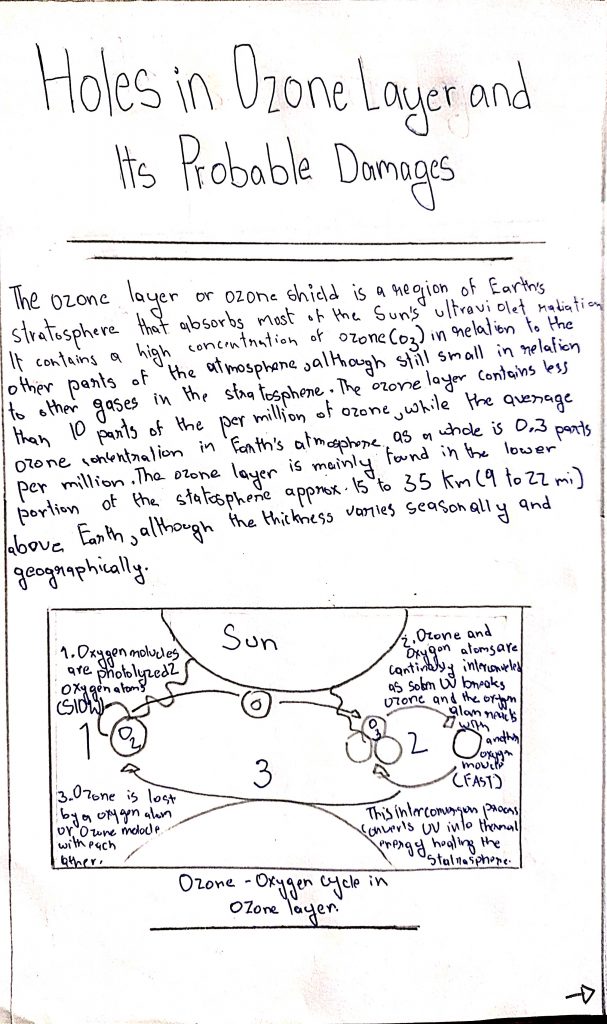 Holes in Ozone Layer and
Its Probable Damages
The ozone layer or ozone shield is a region of Earth's
stratosphere that absorbs most of the Sun's ultraviolet radiation
It contains a high concentration of ozone (O3) in relation to the
other parts of the atmosphere, although still small in relation
to other gases in the stratosphere. The ozone layer contains less
than 10 parts of the per million of ozone, while the average
ozone concentration in Earth's atmosphere as a whole is 0.3 parts
per million. The ozone layer is mainly found in the lower
portion of the statosphere approx. 15 to 35 Km (9 to 22 mi)
above Earth, although the thickness varies seasonally and
geographically.
Sun
1. Oxygen molucules
are photolyzed 2
oxygen atoms
(SlOW)
O2
1
O
O3
2
3
2. Ozone and
Oxygen atoms are
as UV breaks
ozone and the oxygen
with
another
oxygen
(FAST)
3. Ozone is lost
by a oxygen
or Ozone
with each
other.
This process
converts UV into thermal
energy the
Ozone - Oxygen cycle in
Ozone layer.